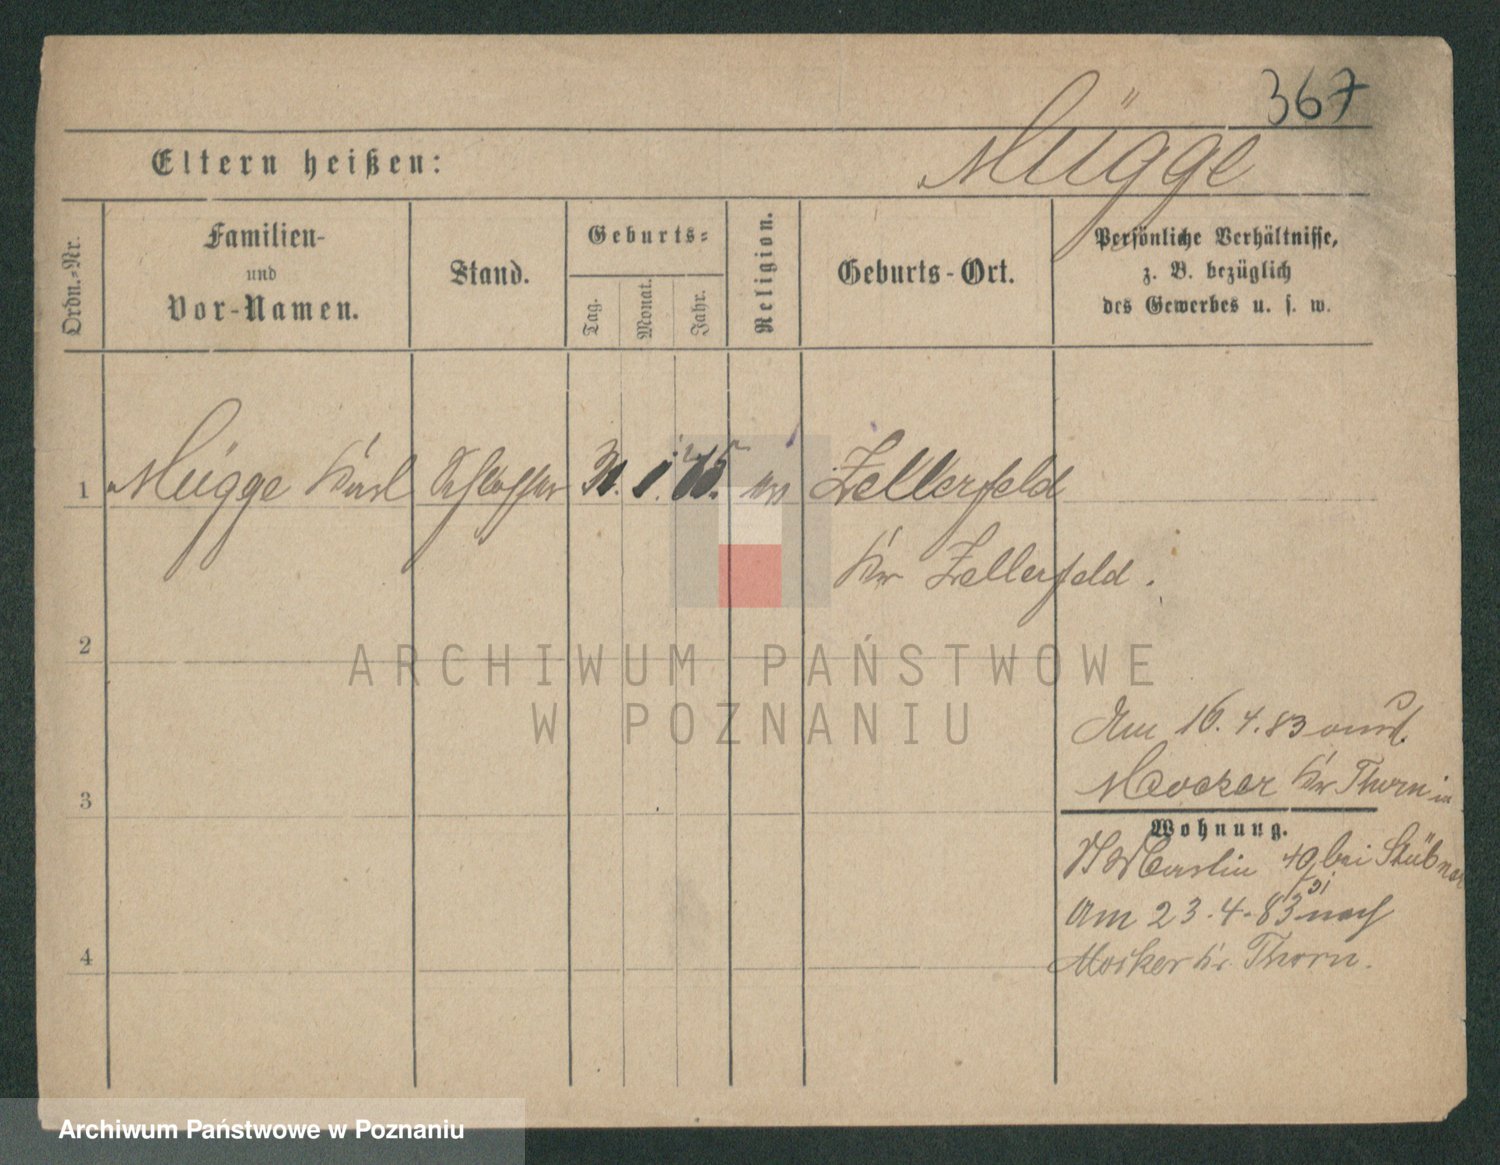 367
Mügge
Eltern heißen:
Ordn.-Nr.
Familien-
und
Vor-Namen.
Stand.
Geburts-
Tag.
Monat.
Jahr.
Religion.
Geburts-Ort.
Persönliche Verhältnisse,
z. B. bezüglich
des Gewerbes u. s. w.
1 Mügge Karl Schlosser Zellerfeld
Kr Zellerfeld.
2
3
4
Am 16.4.83 aus
Mocker Kr Thorn in
Wohnung.
St Martin 40 bei Stübner
Am 23.4.83 nach
Mocker Kr. Thorn.
ARCHIWUM PAŃSTWOWE
W POZNANIU
Archiwum Państwowe w Poznaniu